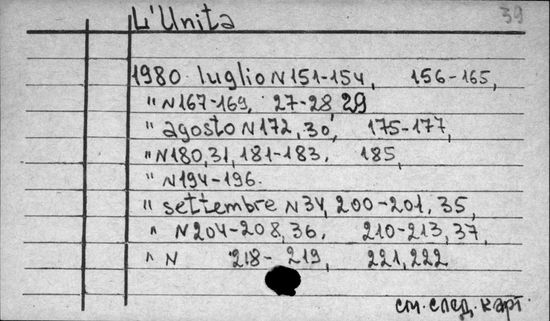 39
L'Unita
1980 luglio N 151-154, 156-165,
" N 167-169, 27-28, 29
" agosto N 172, 30, 175-177,
" N 180, 31, 181-183. 185,
" N 194-196.
" settembre N 34, 200-201, 35,
" N 204-208, 36. 210-213, 37,
" N 218-219, 221, 222
см. след. карт.